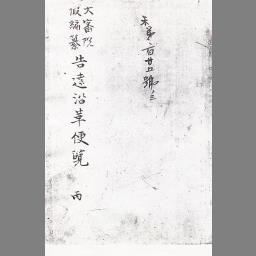 未第百廿五號ノ三
大審院
假編纂
告達沿革便覽 丙